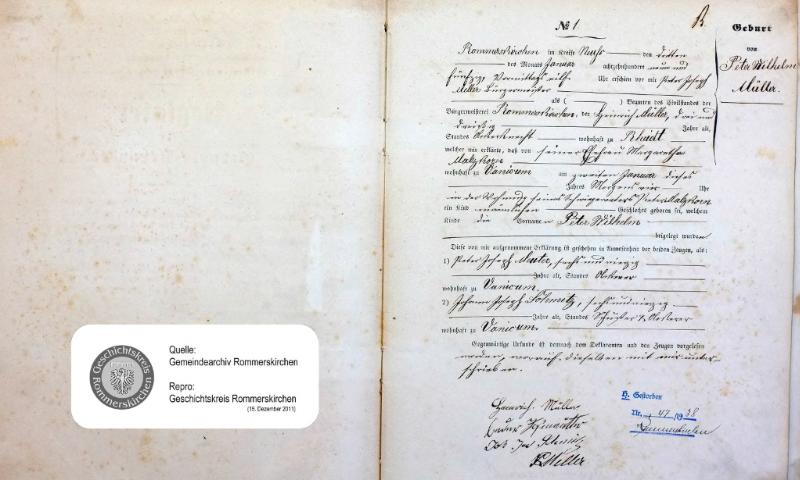 № 1.
B.
Geburt
von
Peter Wilhelm
Müller.
Rommerskirchen im Kreise Neuß den dritten
des Monats Januar achtzehnhundert neun und
fünfzig, Vormittags eilf Uhr erschien vor mir Peter Joseph
Meller Bürgermeister
als ( ) Beamten des Civilstandes der
Bürgermeisterei Rommerskirchen, der Heinrich Müller, drei und
dreißig Jahre alt,
Standes Ackerknecht wohnhaft zu
welcher mir erklärte, daß von seiner Ehefrau Margaretha
Malzkorn
wohnhaft zu Vanicum am zweiten Januar dieses
Jahres Morgens vier Uhr
in der Wohnung seines Schwiegervaters Peter Malzkorn
ein Kind männlichen Geschlechts geboren sei, welchem
Kinde die Vornamen Peter Wilhelm
beigelegt wurden
Diese von mir aufgenommene Erklärung ist geschehen in Anwesenheit der beiden Zeugen, als:
1) Peter Joseph sechs und vierzig
Jahre alt, Standes Ackerer
wohnhaft zu Vanicum.
2) Johann Joseph Schmitz, sechs und vierzig
Jahre alt, Standes Ackerer
wohnhaft zu Vanicum.
Gegenwärtige Urkunde ist demnach dem Deklaranten und den Zeugen vorgelesen
worden, worauf dieselben mit mir unter-
schrieben.
Heinrich Müller
Joh Jos Schmitz
PJMeller
H. Gestorben
Nr. 47/1938
Rommerskirchen
Geschichtskreis
Rommerskirchen
Quelle:
Gemeindearchiv Rommerskirchen
Repro:
Geschichtskreis Rommerskirchen
(15. Dezember 2011)